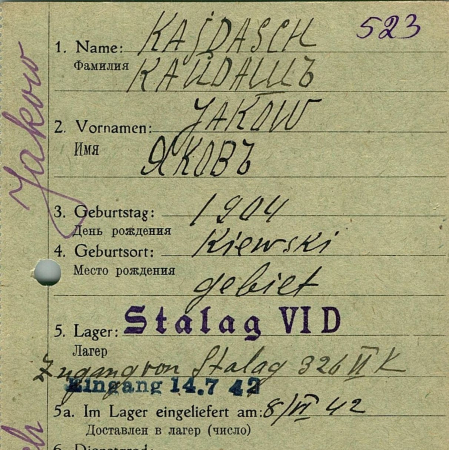 523
1. Name: KAJDASCH
Фамилия КАЙДАШЪ
2. Vornamen: JAKOW
Имя ЯКОВЪ
Jakow
3. Geburtstag: 1904
День рождения
4. Geburtsort: Kiewski
Место рождения gebiet
5. Lager: Stalag VI D
Лагер
Zugang von Stalag 326 VI K
Eingang 14.7 42
5a. Im Lager eingeliefert am: 8/VI 42
Доставлен в лагер (число)